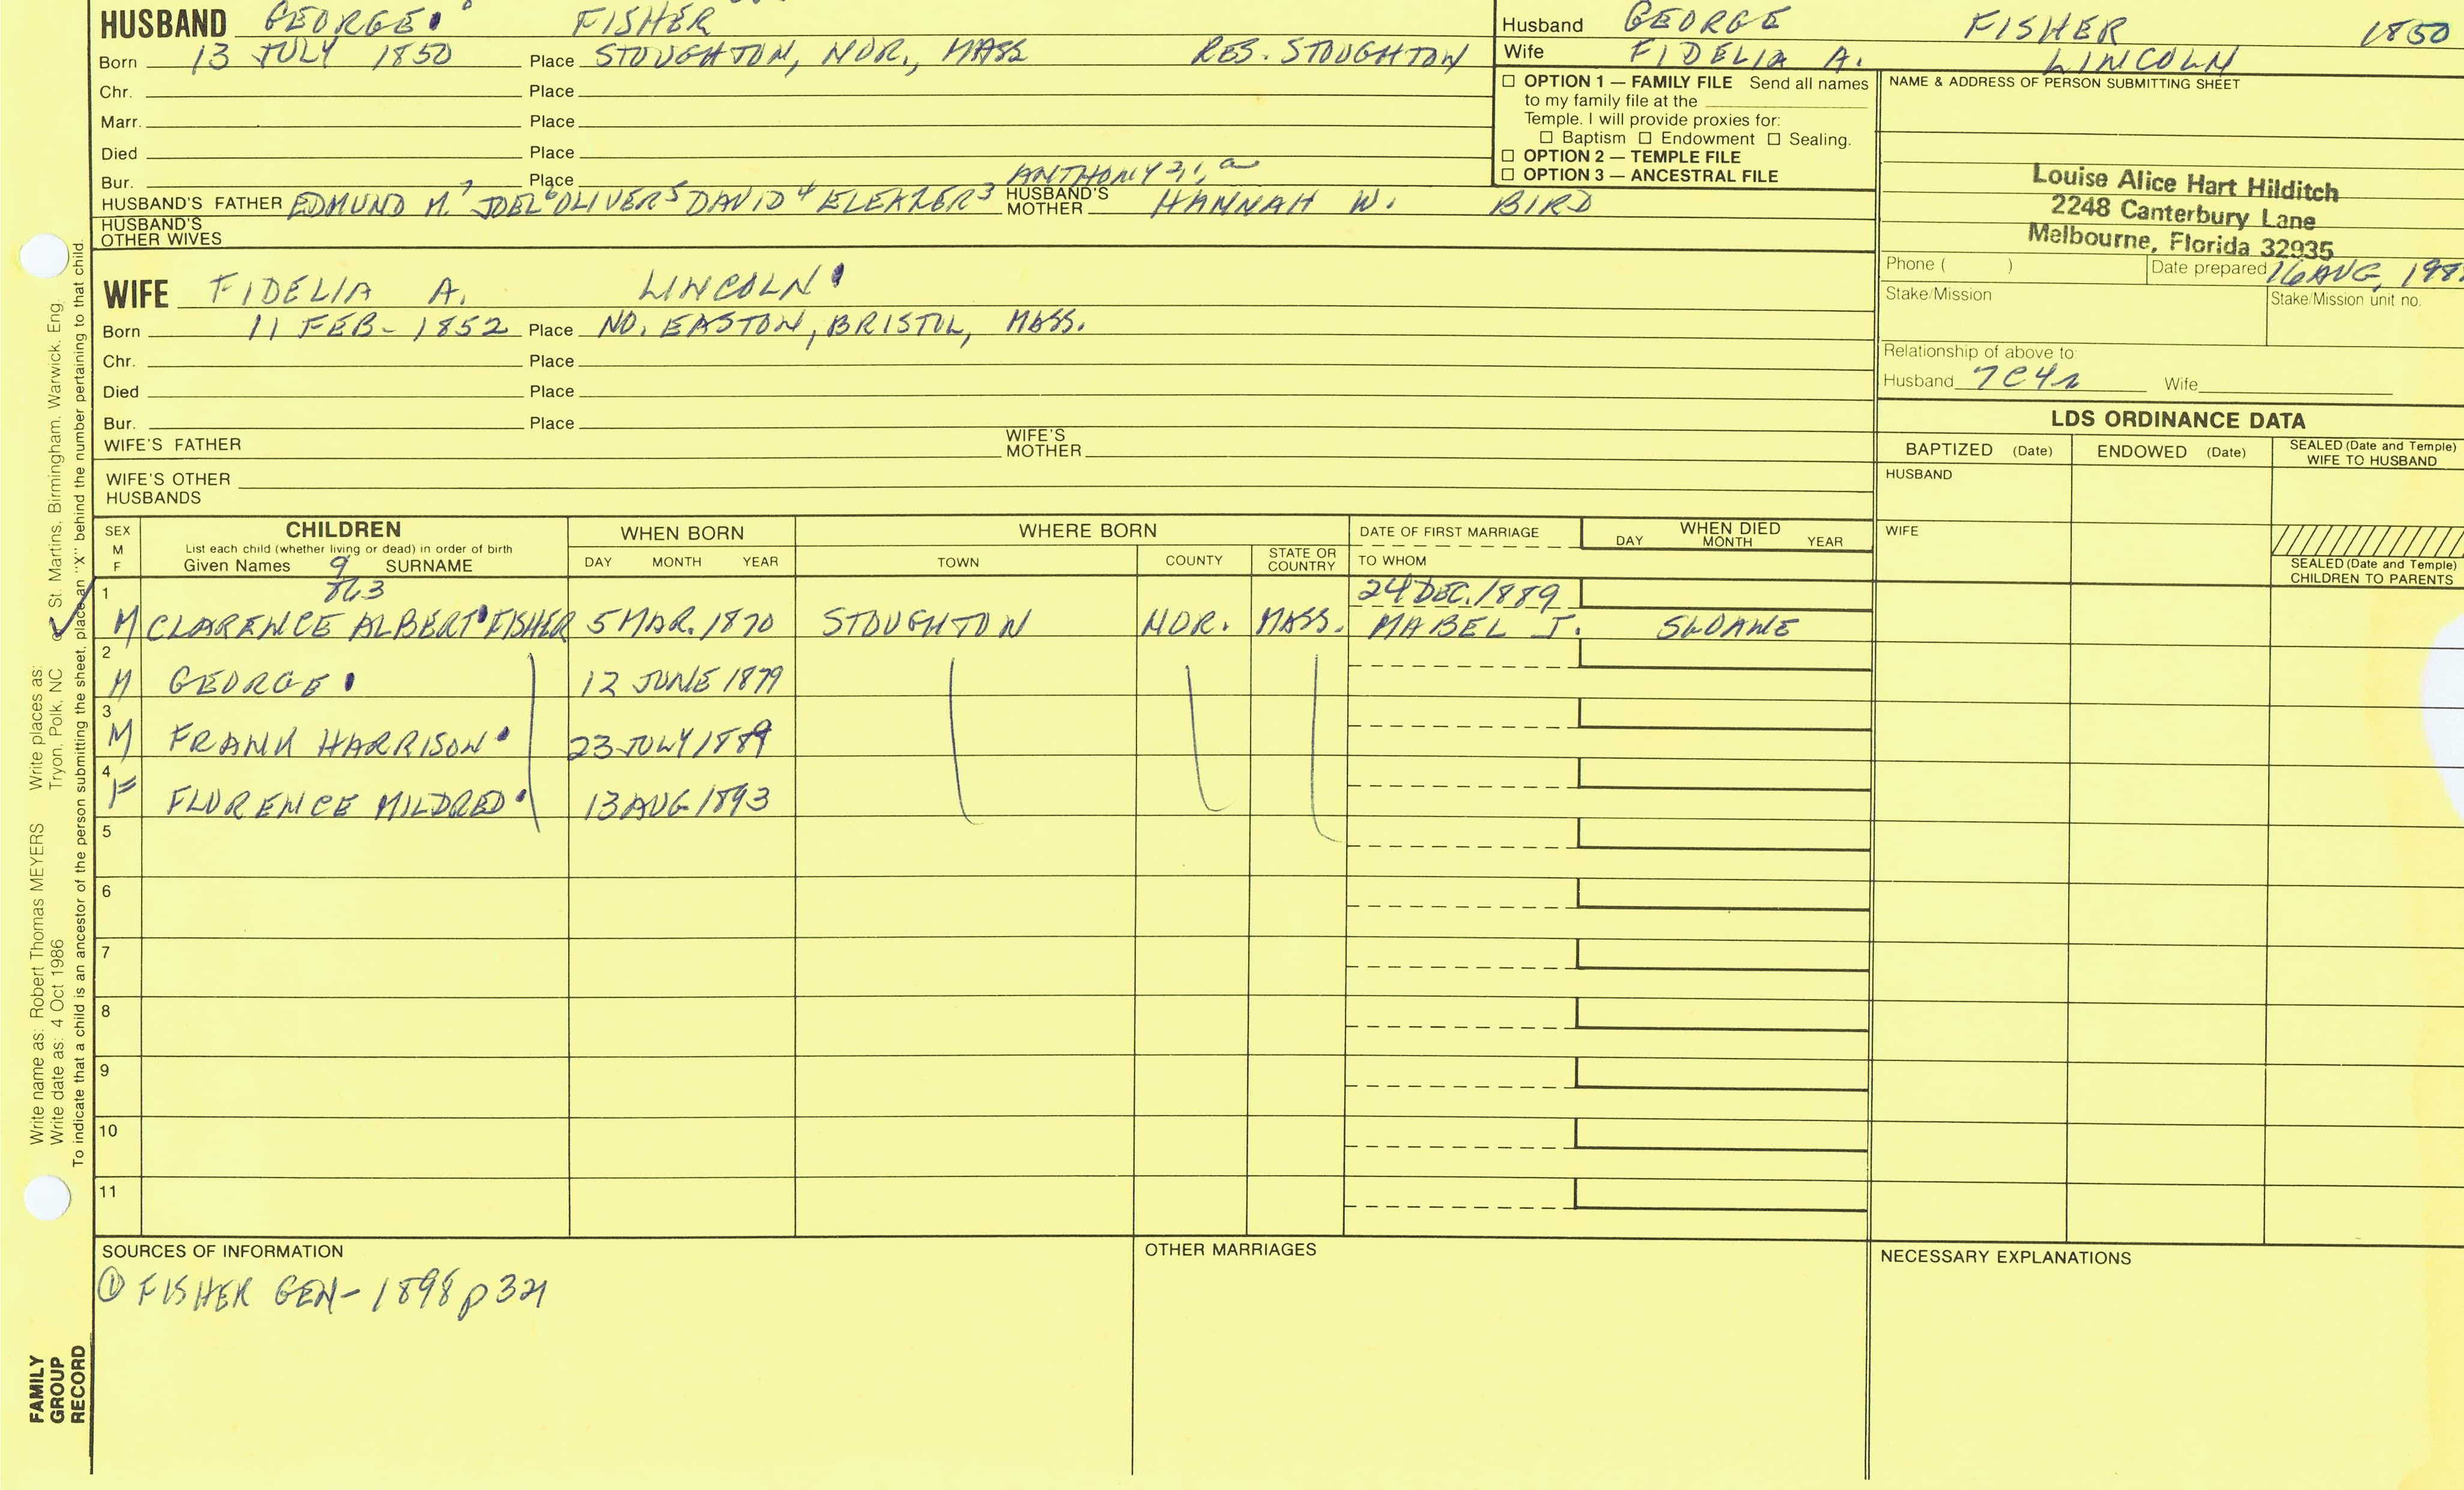 HUSBAND GEORGE FISHER
Born 13 JULY 1850 Place STOUGHTON, NOR., MASS RES. STOUGHTON
Chr. Place
Marr. Place
Died Place
Bur. Place
ANTHONY 2, 1, a
HUSBAND'S FATHER EDMUND M.7 JOEL6 OLIVER5 DAVID4 ELEAZER3 HUSBAND'S MOTHER HANNAH W. BIRD
HUSBAND'S OTHER WIVES
WIFE FIDELIA A. LINCOLN
Born 11 FEB - 1852 Place NO. EASTON, BRISTOL, MASS.
Chr. Place
Died Place
Bur. Place
WIFE'S FATHER WIFE'S MOTHER
WIFE'S OTHER HUSBANDS
Husband GEORGE FISHER 1850
Wife FIDELIA A. LINCOLN
☐ OPTION 1 — FAMILY FILE Send all names
to my family file at the
Temple. I will provide proxies for:
☐ Baptism ☐ Endowment ☐ Sealing.
☐ OPTION 2 — TEMPLE FILE
☐ OPTION 3 — ANCESTRAL FILE
NAME & ADDRESS OF PERSON SUBMITTING SHEET
Louise Alice Hart Hilditch
2248 Canterbury Lane
Melbourne, Florida 32935
Phone ( ) Date prepared 16 AUG, 198
Stake/Mission Stake/Mission unit no.
Relationship of above to:
Husband 7C4r Wife
LDS ORDINANCE DATA
BAPTIZED (Date) ENDOWED (Date) SEALED (Date and Temple) WIFE TO HUSBAND
HUSBAND
WIFE
SEALED (Date and Temple)
CHILDREN TO PARENTS
SEX M F
CHILDREN
List each child (whether living or dead) in order of birth
Given Names SURNAME
WHEN BORN
DAY MONTH YEAR
WHERE BORN
TOWN COUNTY STATE OR COUNTRY
DATE OF FIRST MARRIAGE
TO WHOM
WHEN DIED
DAY MONTH YEAR
9
863
24 DEC. 1889
1 M CLARENCE ALBERT FISHER 5 MAR. 1870 STOUGHTON NOR. MASS. MABEL J. SLOANE
2 M GEORGE 12 JUNE 1879
3 M FRANK HARRISON 23 JULY 1889
4 F FLORENCE MILDRED 13 AUG 1893
5
6
7
8
9
10
11
SOURCES OF INFORMATION
① FISHER GEN- 1898 p 321
OTHER MARRIAGES
NECESSARY EXPLANATIONS
Write name as: Robert Thomas MEYERS Write places as:
Write date as: 4 Oct 1986 Tryon, Polk, NC or St. Martins, Birmingham, Warwick, Eng
To indicate that a child is an ancestor of the person submitting the sheet, place an "X" behind the number pertaining to that child.
FAMILY
GROUP
RECORD